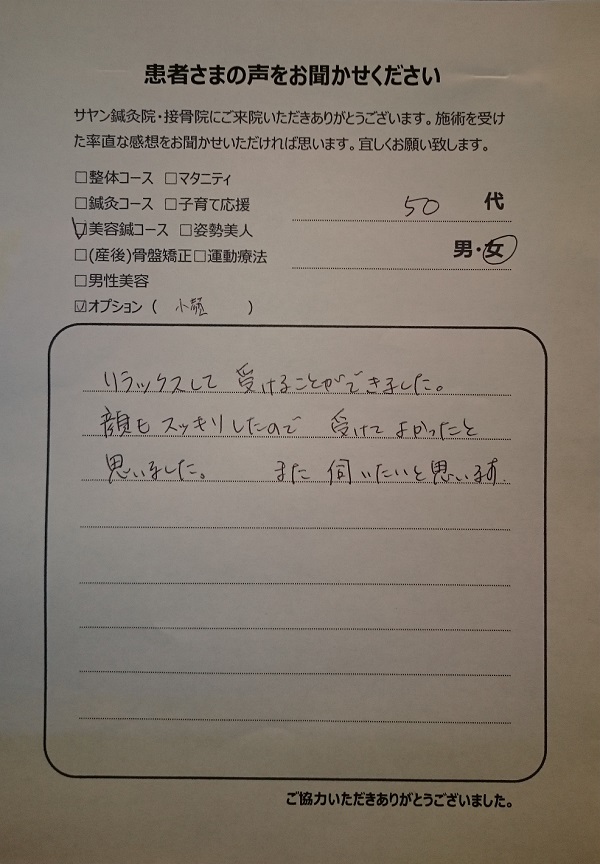 患者さまの声をお聞かせください
サヤン鍼灸院・接骨院にご来院いただきありがとうございます。施術を受け
た率直な感想をお聞かせいただければ思います。宜しくお願い致します。
□整体コース □マタニティ
□鍼灸コース □子育て応援
☑美容鍼コース □姿勢美人
□(産後)骨盤矯正□運動療法
□男性美容
☑オプション ( 小顔 )
50 代
男・女
リラックスして 受けることができました。
顔もスッキリしたので 受けて よかったと
思いました。 また 伺いたいと思います.
ご協力いただきありがとうございました。